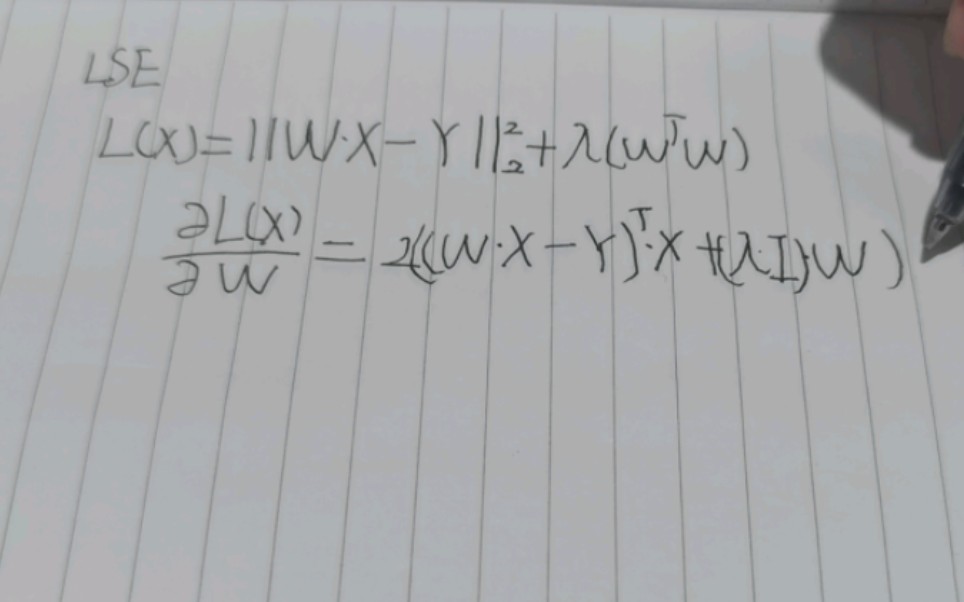 LSE
L(X)=||W·X-Y||₂²+λ(WᵀW)
∂L(X)/∂W = 2((W·X-Y)ᵀ·X+(λ·I)·W)